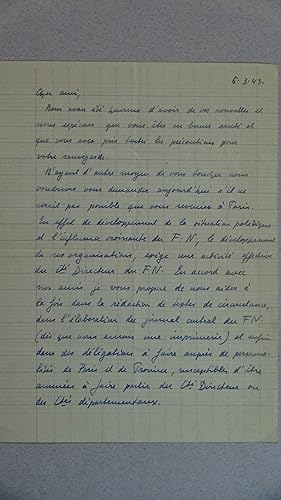 5.3.43.
Cher ami,
Nous avons été heureux d'avoir de vos nouvelles et
nous espérons que vous êtes en bonne santé et
que vous avez pris toutes les précautions pour
votre sauvegarde.
N'ayant d'autre moyen de vous toucher nous
voudrions vous demander aujourd'hui s'il ne
serait pas possible que vous reveniez à Paris.
En effet le développement de la situation politique
et l'influence croissante du F.N., le développement
de ses organisations, exige une activité effective
du Cté Directeur du F.N. En accord avec
nos amis je vous propose de nous aider à
la fois dans la rédaction de textes de circonstance,
dans l'élaboration du journal central du F.N.
(dès que nous aurons une imprimerie) et enfin
dans des délégations à faire auprès de person-
alités de Paris et de Province, susceptibles d'être
amenées à faire partie du Cté Directeur ou
des Ctés départementaux.